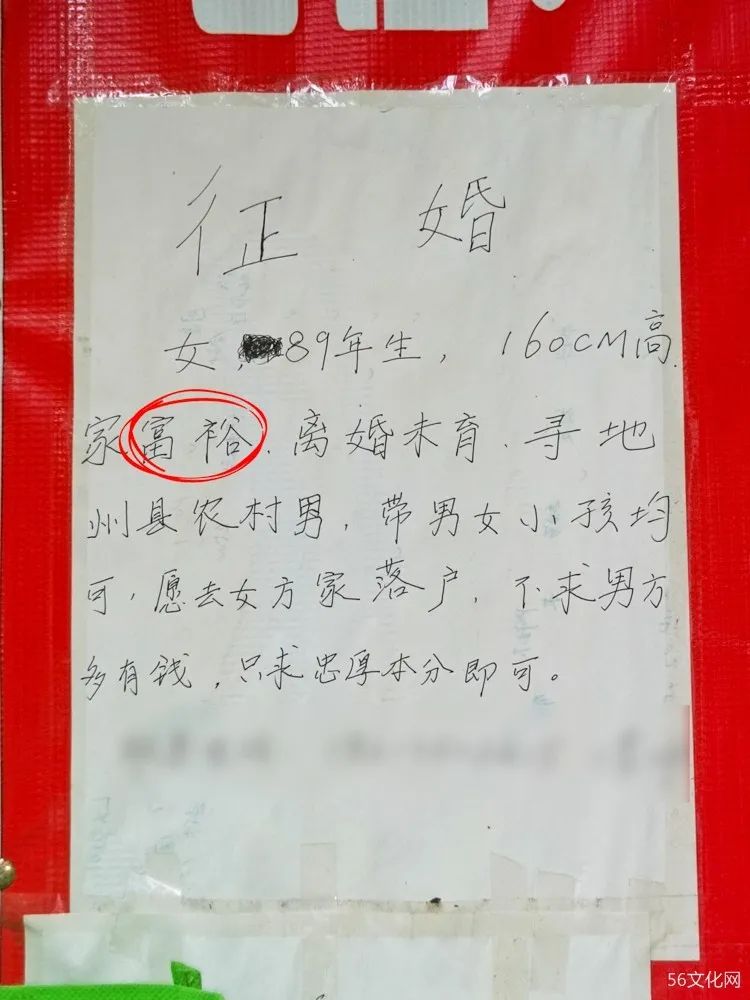 征 婚
女,89年生, 160CM高.
家富裕.离婚未育.寻地
州县农村男,带男女小孩均
可,愿去女方家落户,不求男方
多有钱,只求忠厚本分即可。
56文化网